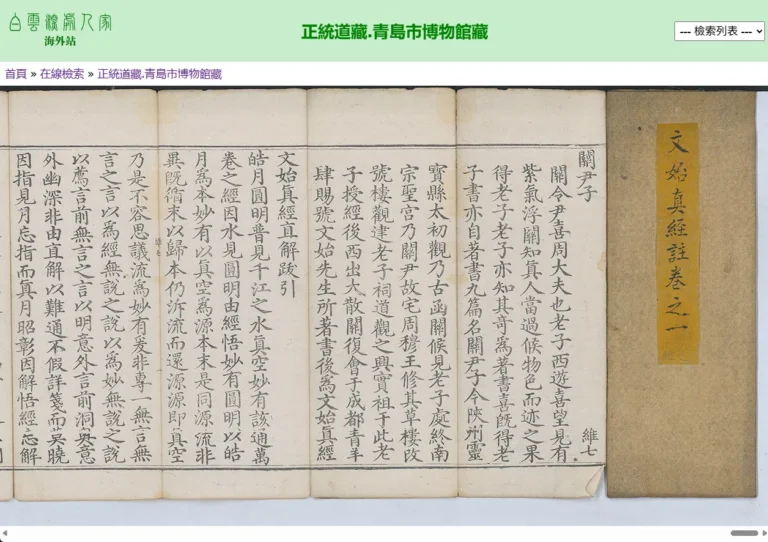 白雲深處人家
海外站
正統道藏.青島市博物館藏
--- 檢索列表 ---
首頁 » 在線檢索 » 正統道藏.青島市博物館藏
文始真經註卷之一
關尹子
維七
關令尹喜周大夫也老子西遊喜望見有
紫氣浮關知真人當過候物色而迹之果
得老子老子亦知其奇為著書喜既得老
子書亦自著書九篇名關尹子今陝州靈
寶縣太初觀乃古函關候見老子處終南
宗聖宮乃關尹故宅周穆王修其草樓改
號樓觀建老子祠道觀之興實祖于此老
子授經後西出大散關復會于成都青羊
肆賜號文始先生所著書後為文始真經
文始真經直解跋引
皓月圓明普見千江之水真空妙有該通萬
卷之經因水見圓明由經悟妙有圓明以皓
月為本妙有以真空為源本末是同源流非
異既循末以歸本仍泝流而還源源即真空
乃是不容思議流為妙有爰非專一無言無
言之言以為經無說之說以為妙無說之說
以薦言前無言之言以明意外言前洞奧意
外幽深非由直解以難通不假詳箋而奚曉
因指見月忘指而真月昭彰因解悟經忘解